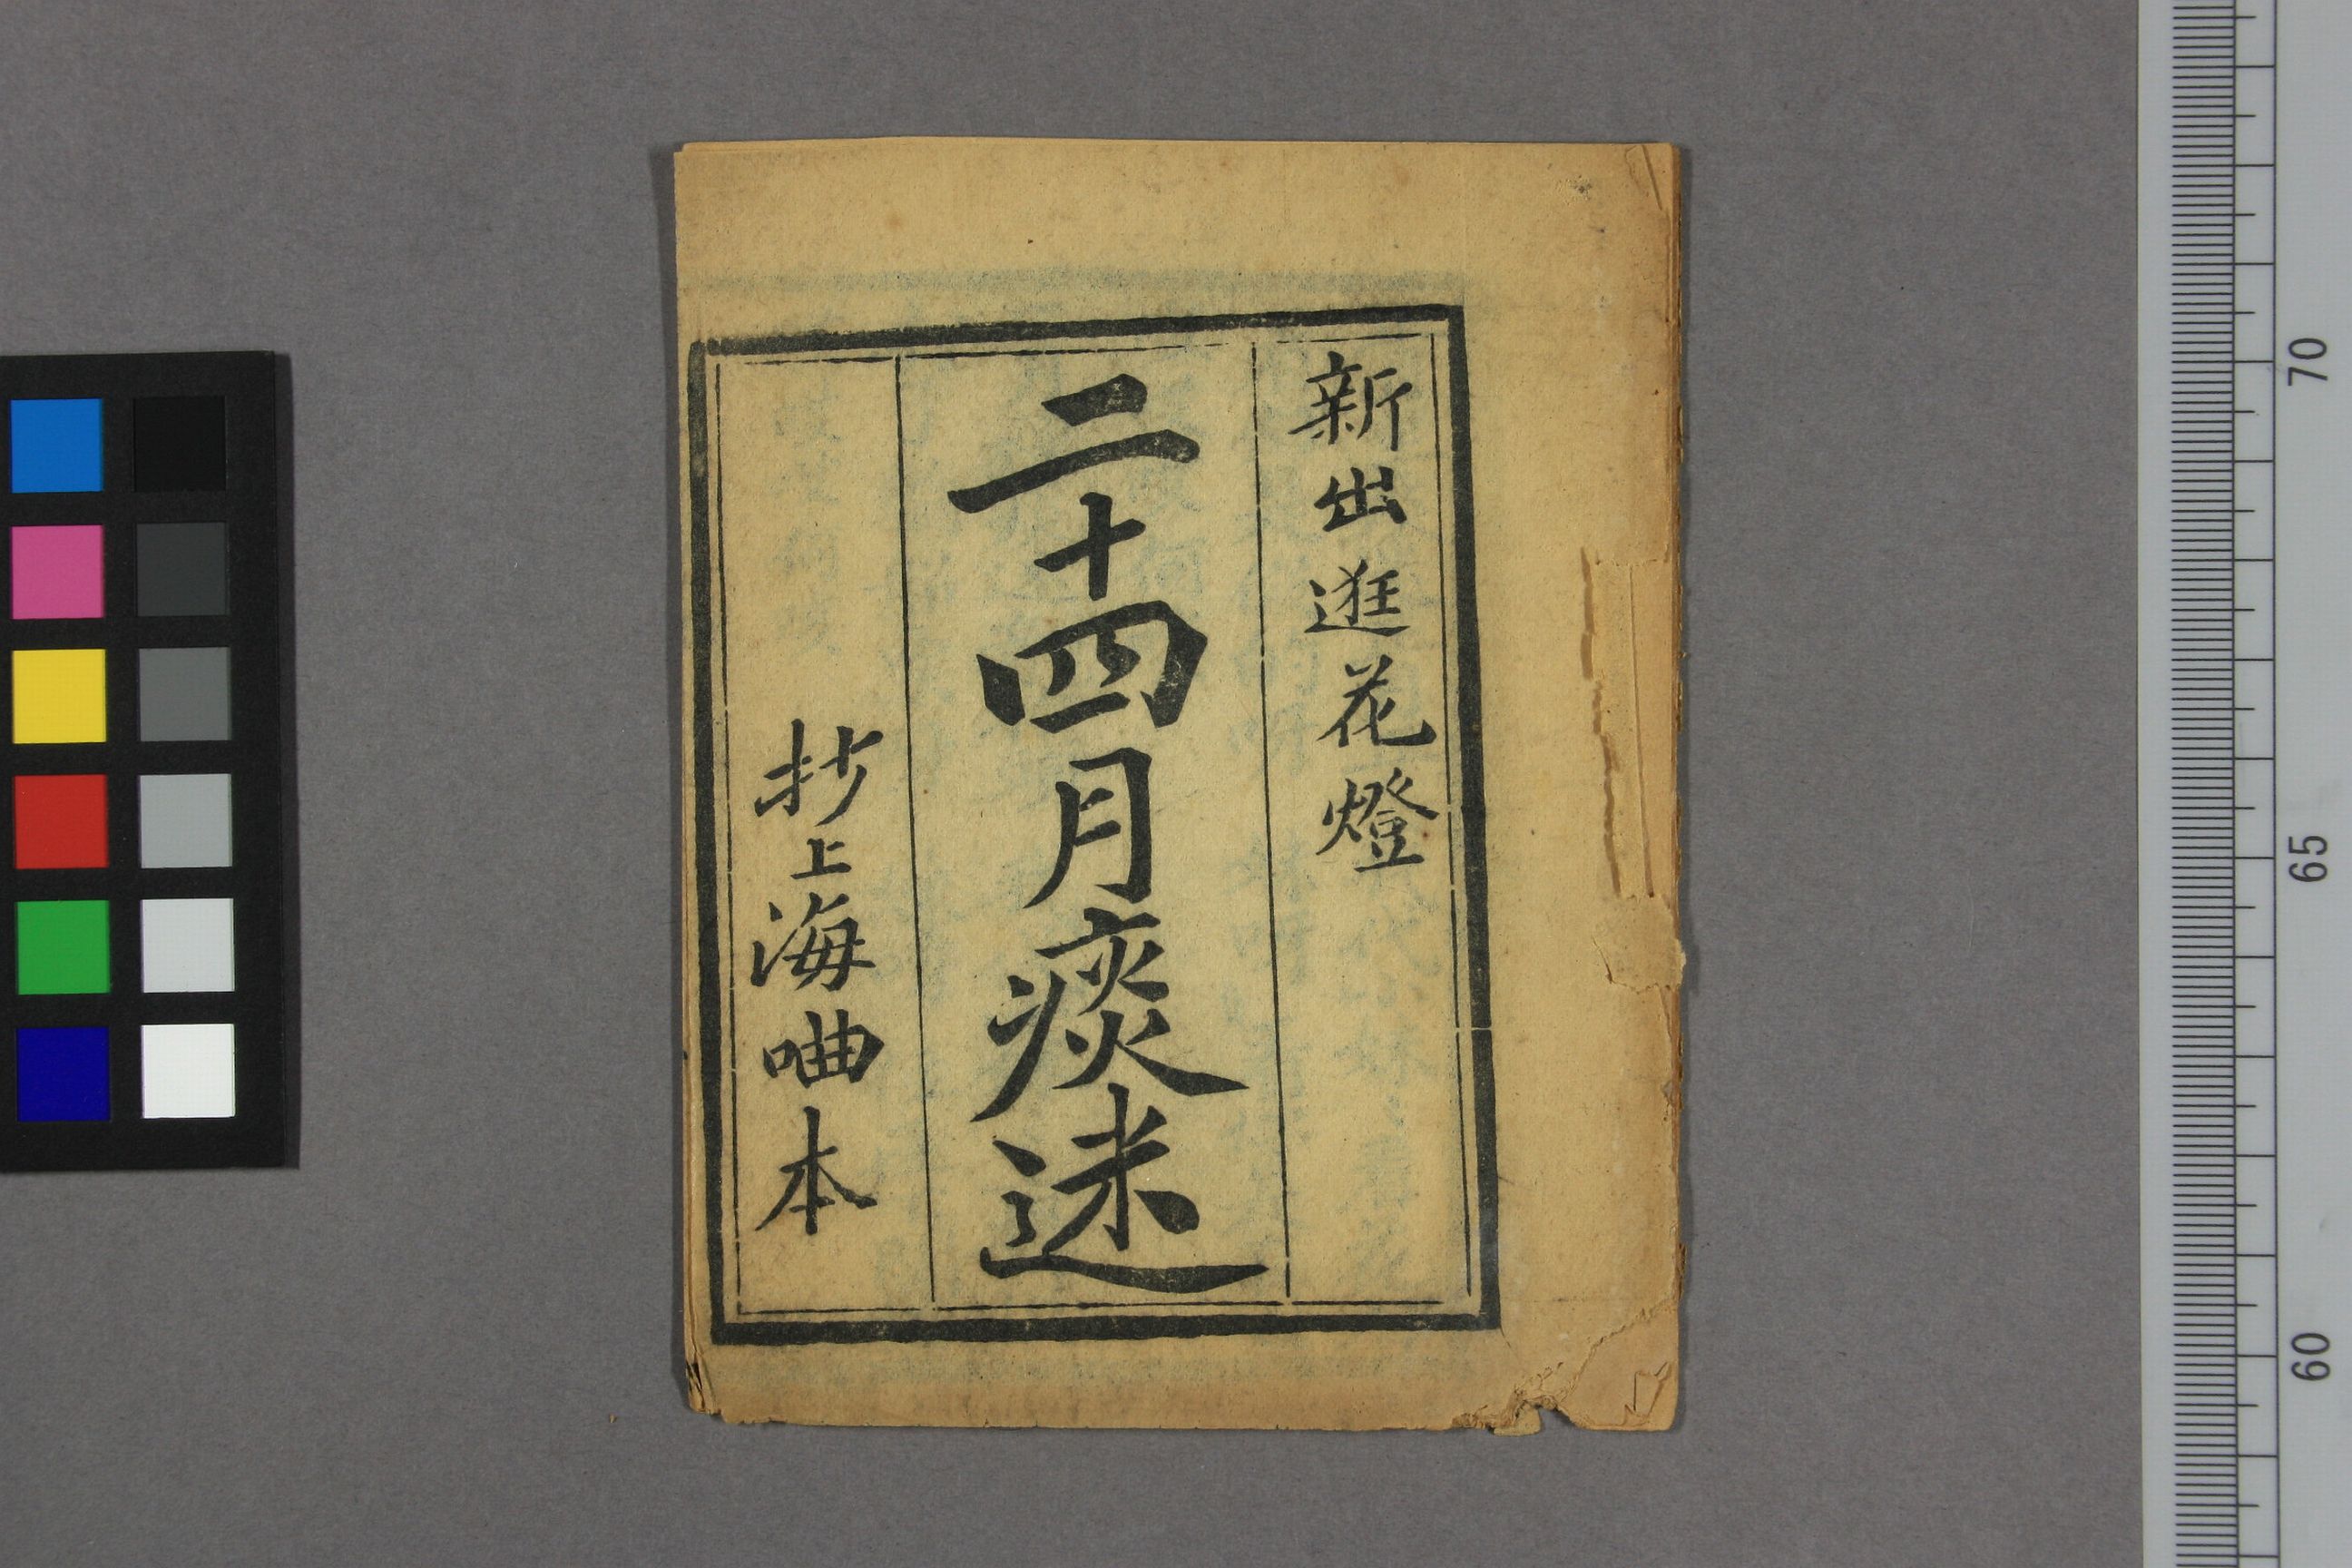 新出逛花燈
二十四月痰迷
抄上海㖆本
70
65
60